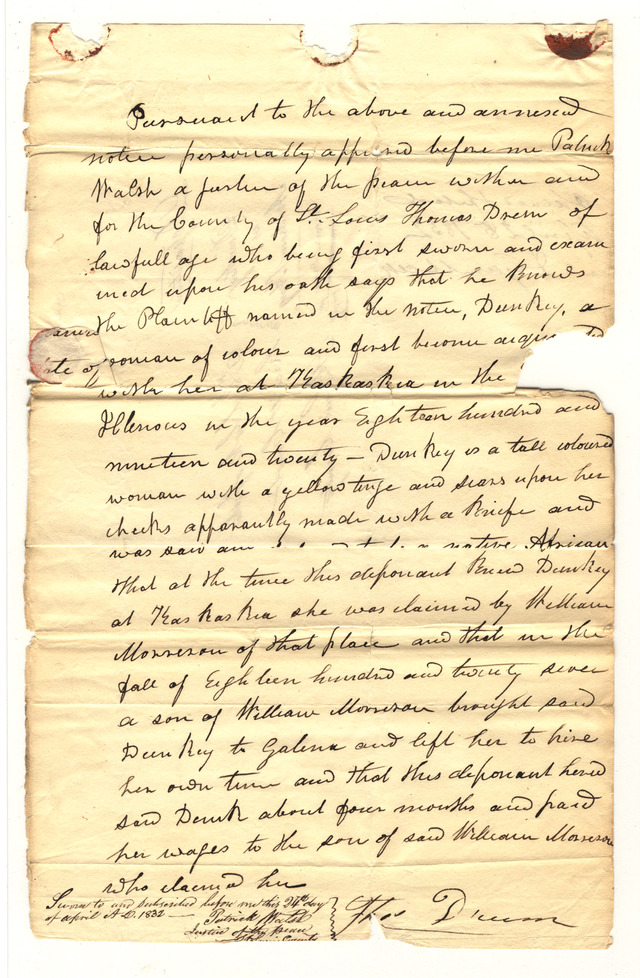 Pursuant to the above and annexed
notice personally appeared before me Patrick
Walsh a justice of the peace within and
for the County of St. Louis Thomas Drum of
lawfull age who being first sworn and exam
ined upon his oath says that he Knows
the Plaintiff named in the notice, Dunkey, a
woman of colour and first become acqu
with her at Kaskaskia in the
Illenois in the year Eighteen hundred and
nineteen and twenty – Dunkey is a tall coloured
woman with a yellow tinge and scars upon her
cheeks apparantly made with a Knife and
was said native African
that at the time this deponant Knew Dunkey
at Kaskaskia she was claimed by William
Morreson of that place and that in the
fall of Eighteen hundred and twenty seven
a son of William Morreson brought said
Dunkey to Galena and left her to hire
her own time and that this deponant hered
said Dunk about four months and paid
her wages to the son of said William Morreson
who claimed her
Sworn to and Subscribed before me this 24th day
of april A.D. 1832 —
Patrick Walsh
Justice of the peace
St Louis County
Thos Drum